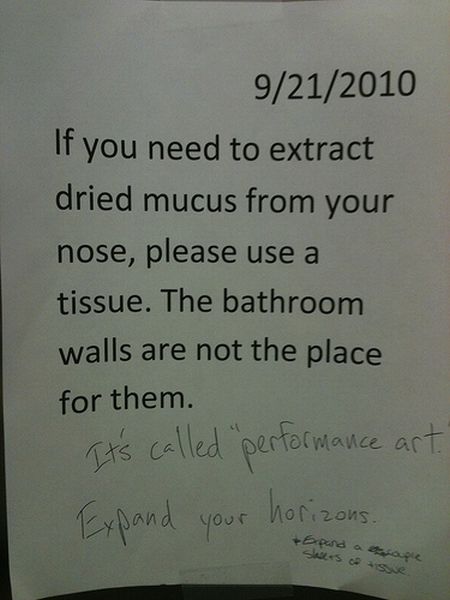 9/21/2010
If you need to extract
dried mucus from your
nose, please use a
tissue. The bathroom
walls are not the place
for them.
It's called "performance art."
Expand your horizons.
Expand a couple
sheets of tissue.